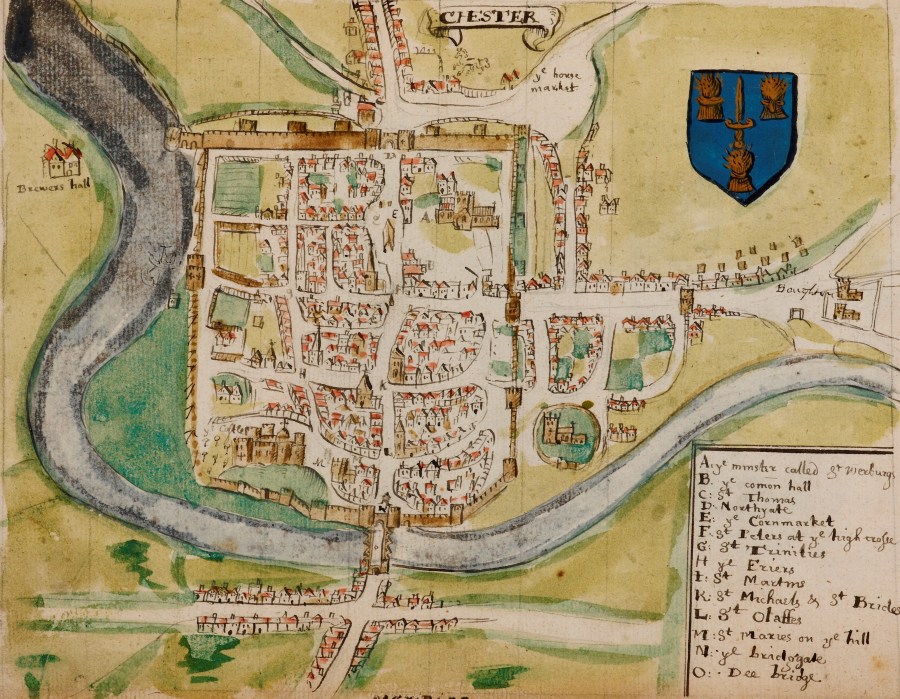 CHESTER
ye horse
market
Brewers hall
E
A
H
K
M
L
Castle
Boughton
A: ye minster called St Werburgs
B. ye comon hall
C: St Thomas
D: Northgate
E: ye Cornmarket
F: St Peters at ye high crosse
G: St Trinities
H ye Friers
I: St Martins
K: St Michaels & St Brides
L: St Olaffes
M: St Maries on ye hill
N: ye bridggate
O: Dee bridge